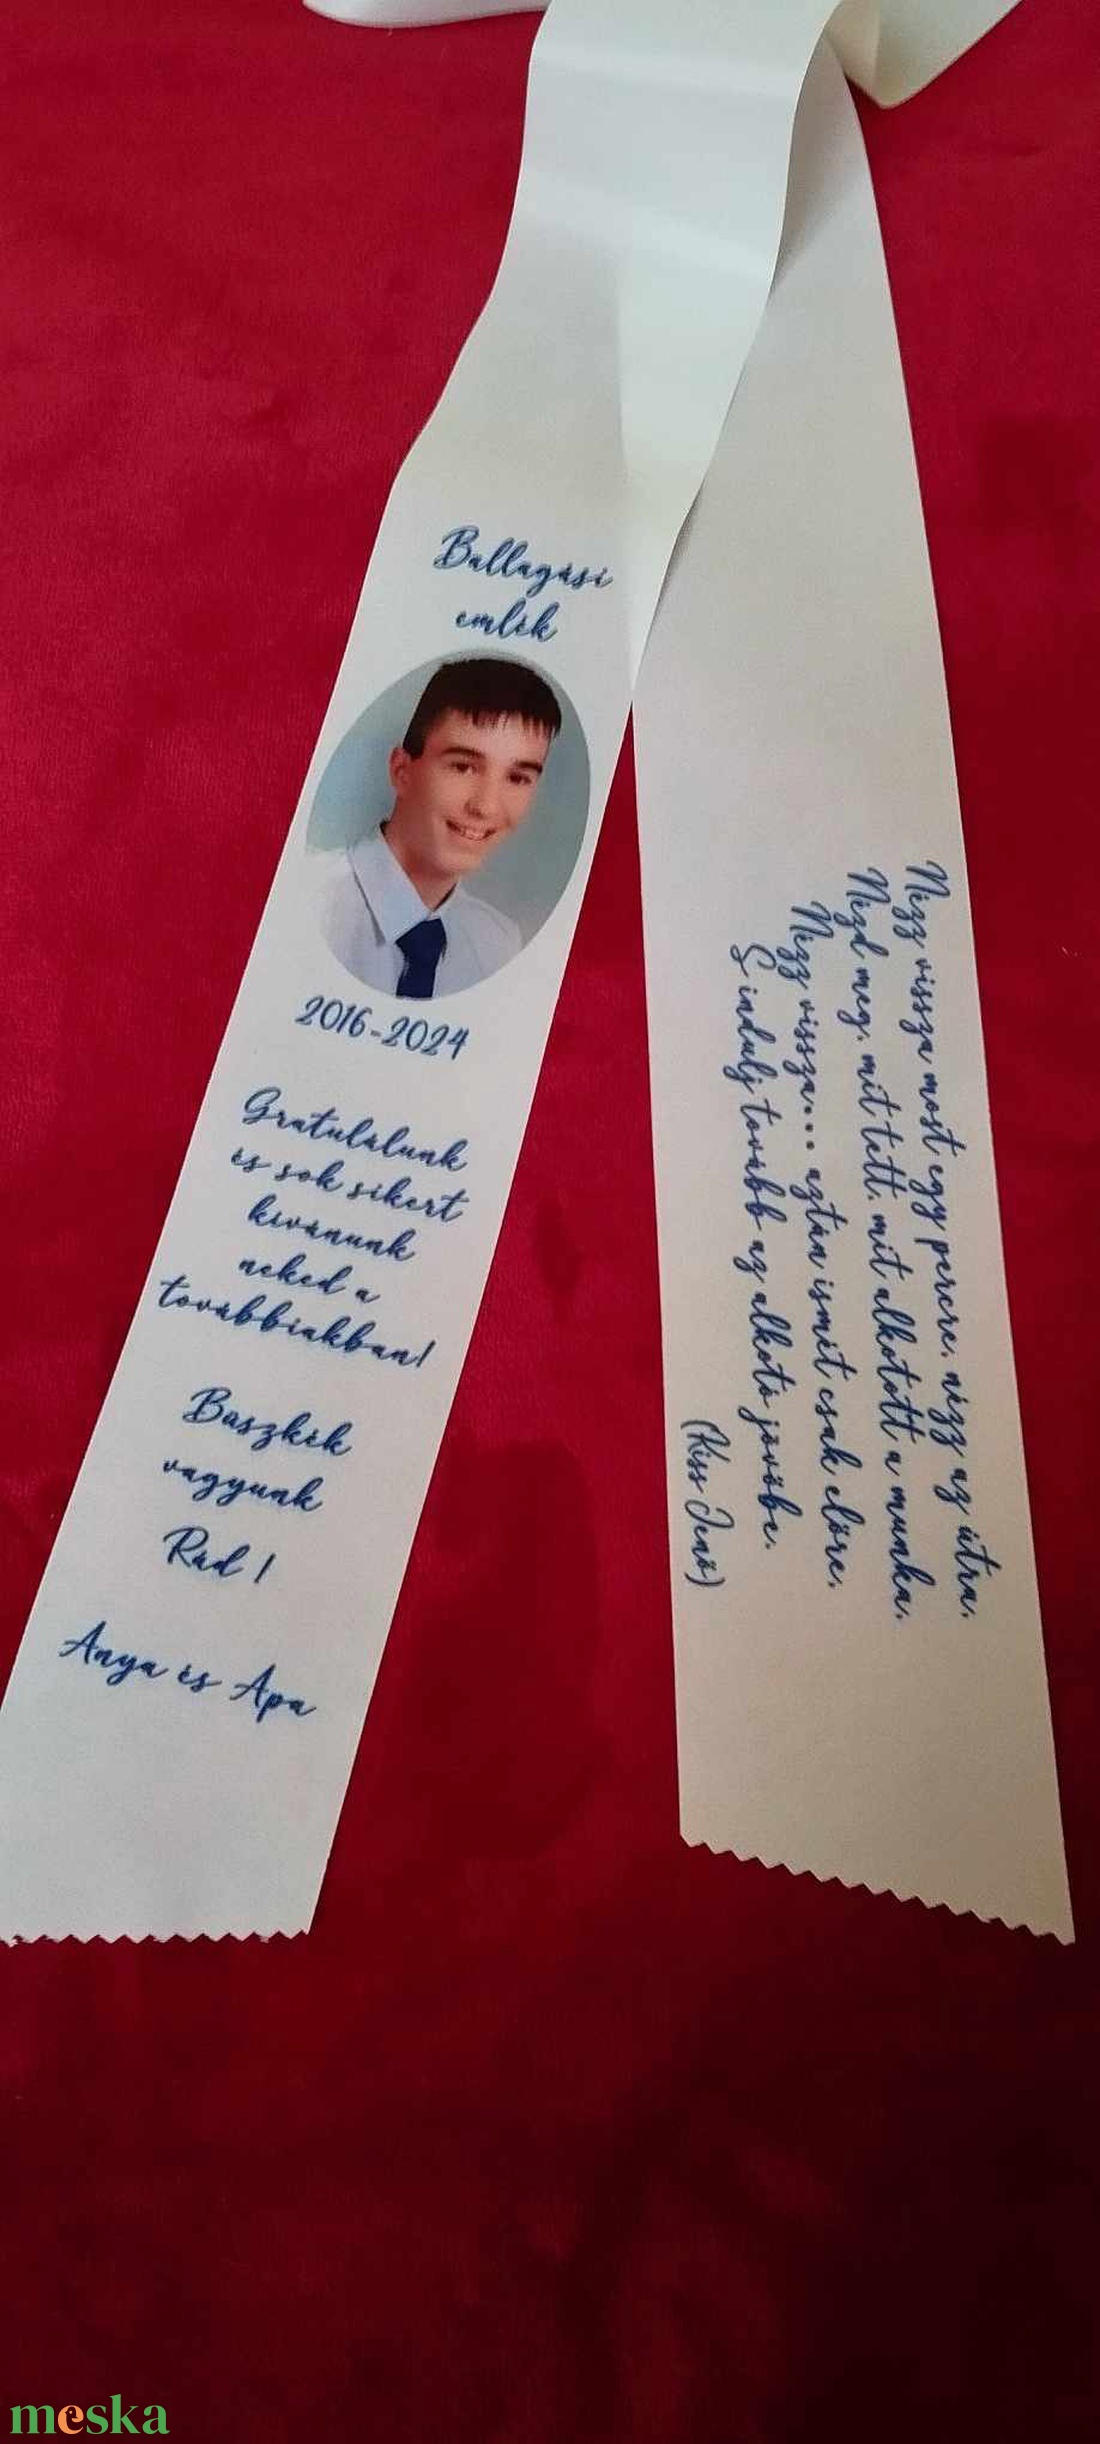 Ballagási
emlék
2016-2024
Gratulálunk
és sok sikert
kívánunk
neked a
továbbiakban!
Büszkék
vagyunk
Rád !
Anya és Apa
Nézz vissza most egy percre, nézz az útra,
Nézd meg, mit tett, mit alkotott a munka,
Nézz vissza... aztán ismét csak előre,
S indulj tovább az alkotó jövőbe.
(Kiss Jenő)
meska